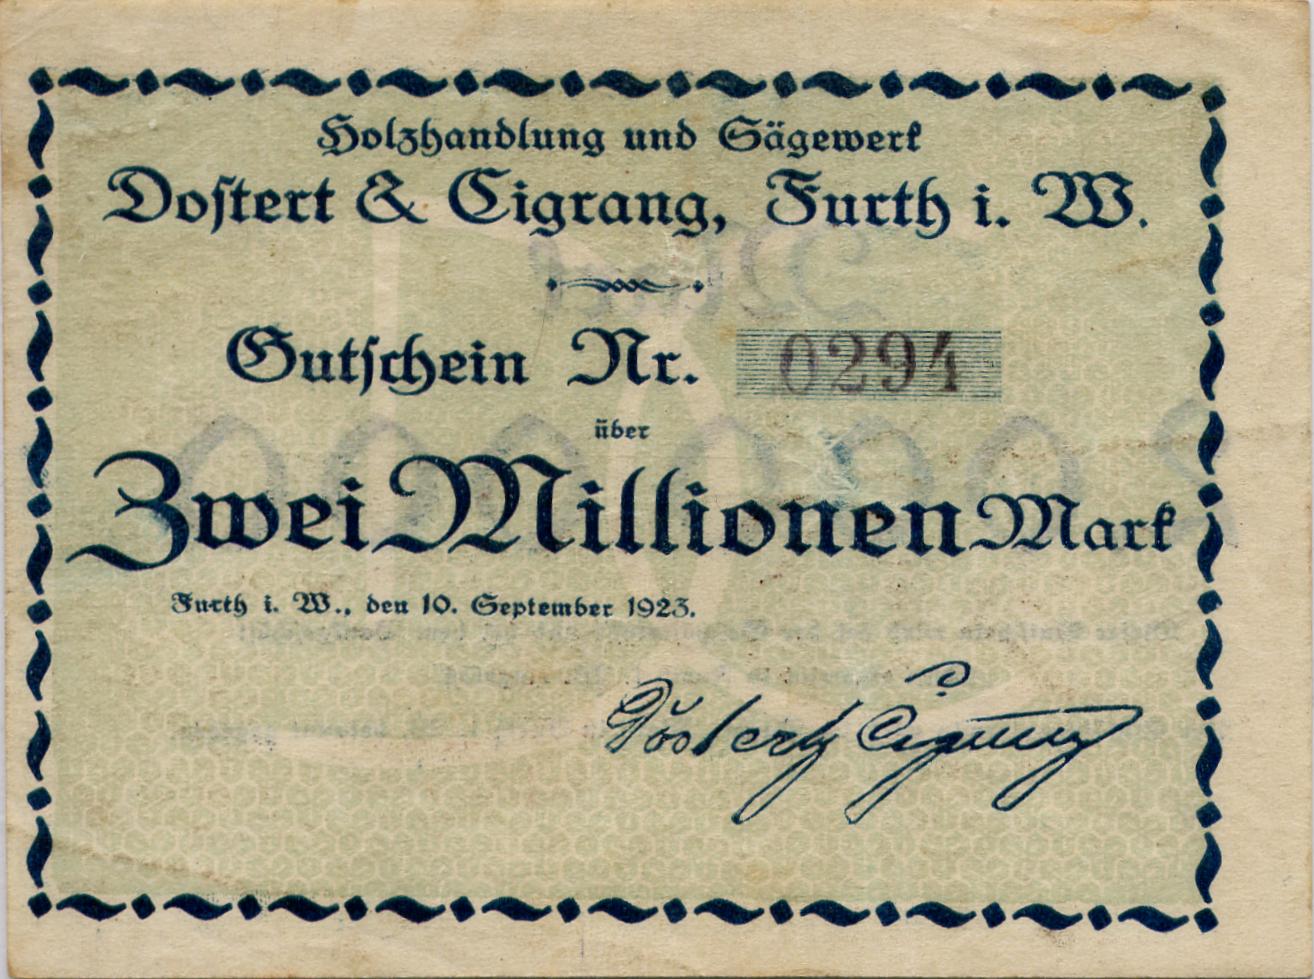 Holzhandlung und Sägewerk
Dostert & Cigrang, Furth i. W.
Gutschein Nr. 0294
über
Zwei Millionen Mark
Furth i. W., den 10. September 1923.
Dostert & Cigrang